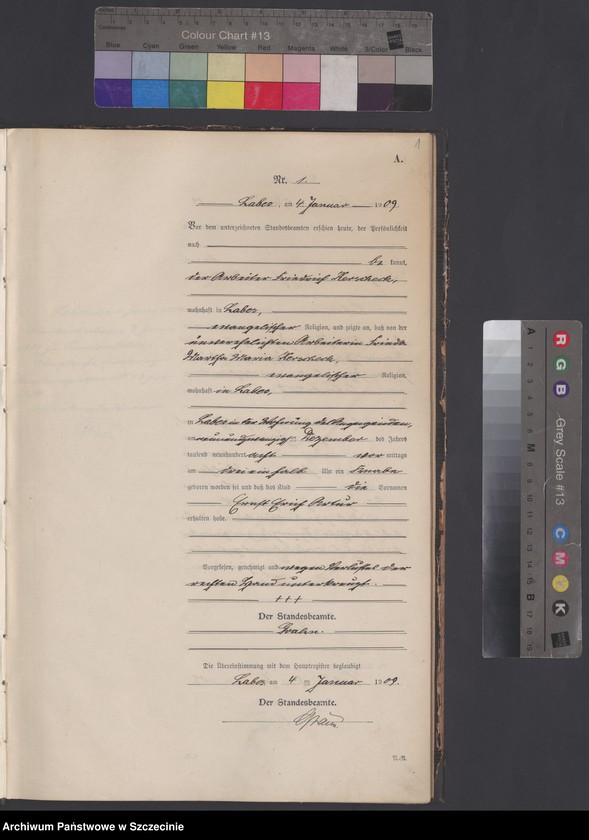 Colour Chart #13
Blue Cyan Green Yellow Red Magenta White 3/Color Black
1
A.
Nr. 1.
Labes, am 4. Januar 1909.
Vor dem unterzeichneten Standesbeamten erschien heute, der Persönlichkeit
nach
be kannt,
der Arbeiter Friedrich
wohnhaft in Labes,
evangelischer Religion, und zeigte an, daß von der
unverehelichten Arbeiterin Frieda
Martha Maria
evangelischer Religion,
wohnhaft in Labes,
zu Labes in der Wohnung des Anzeigenden,
am neunundzwanzigsten Dezember des Jahres
tausend neunhundert acht vor mittags
um drei einhalb Uhr ein Knabe
geboren worden sei und daß das Kind die Vornamen
Ernst Erich Artur
erhalten habe.
Vorgelesen, genehmigt und wegen Verlustes der
rechten Hand unterkreuzt.
+++
Der Standesbeamte.
Die Übereinstimmung mit dem Hauptregister beglaubigt
Labes, am 4 ten Januar 1909.
Der Standesbeamte.
R
G
B
Grey Scale #13
C
M
Y
K
A 1 2 3 4 5 6 M 8 9 10 11 12 13 14 15 B 17 18 19
Archiwum Państwowe w Szczecinie